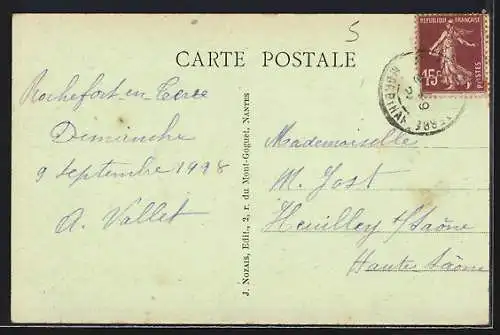 5
CARTE POSTALE
REPUBLIQUE FRANÇAISE
15c
POSTES
Rochefort-en-Terre
Dimanche
9 septembre 1928
A. Vallet
J. Nozais, Edit., 2, r. du Mont-Goguet, Nantes
Mademoiselle
M. Jost
Heuilley s/Saône
Haute Saône